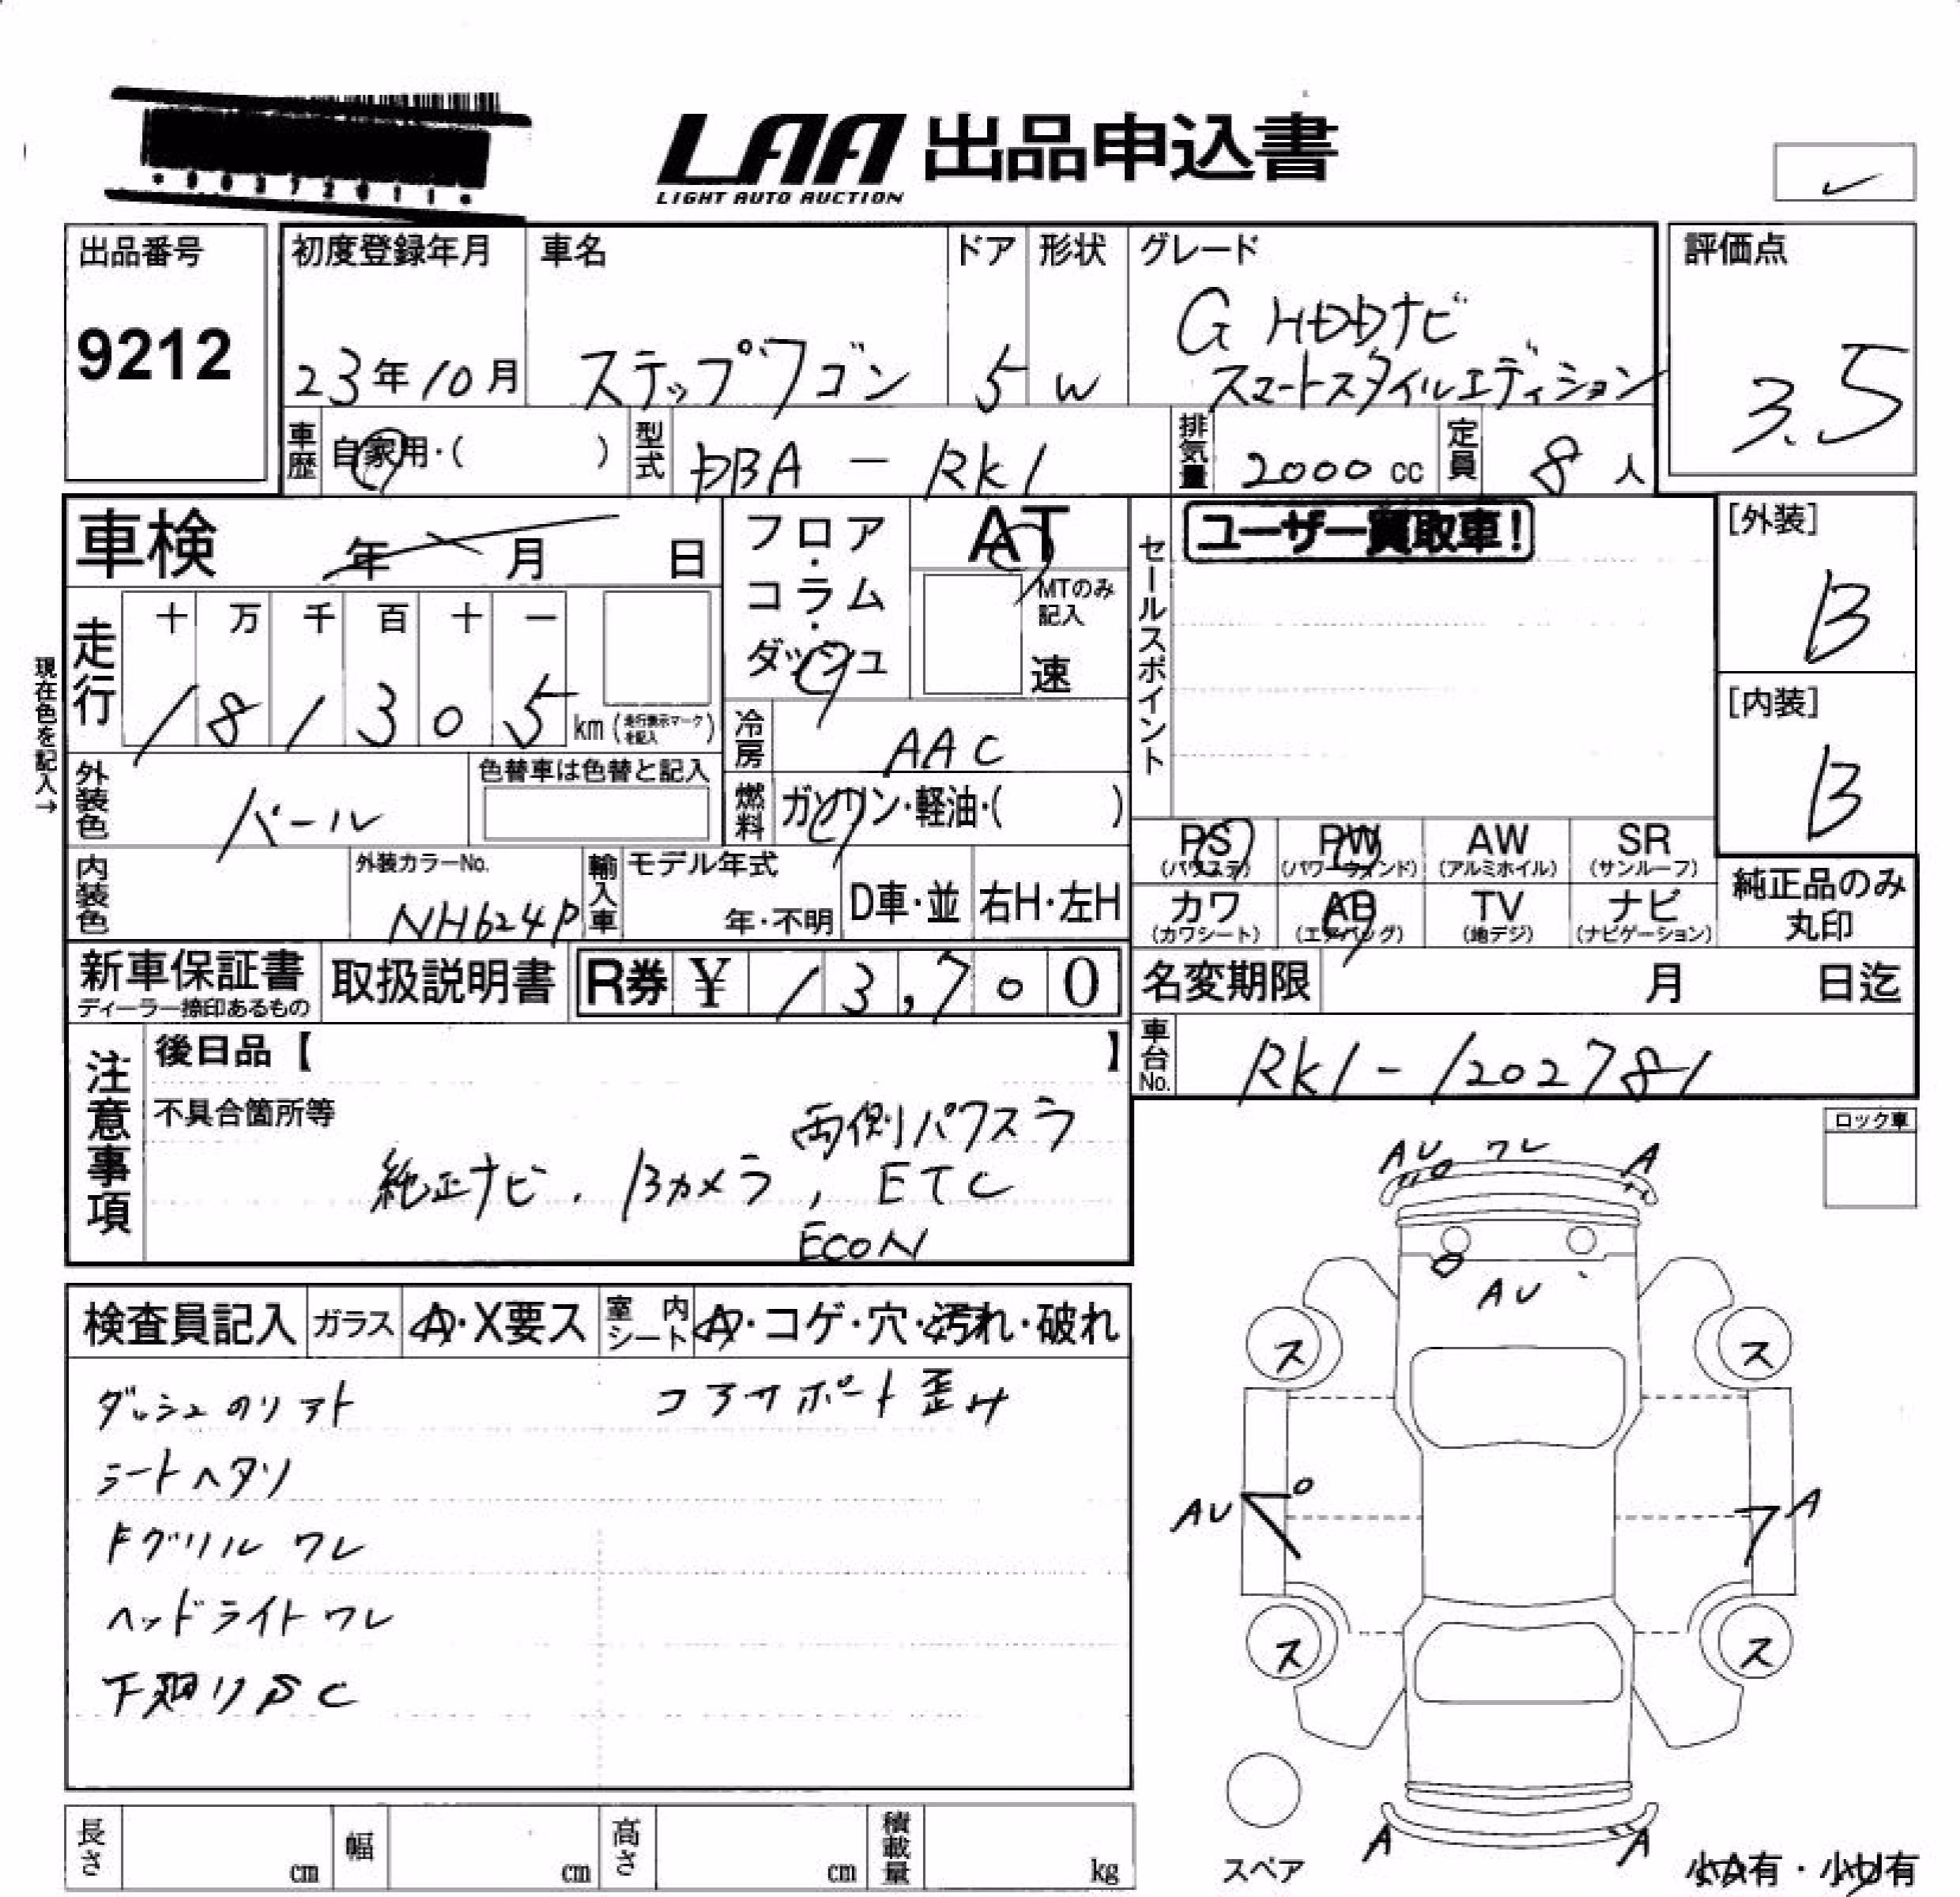 LAA 出品申込書
LIGHT AUTO AUCTION
出品番号
9212
初度登録年月 車名 ドア 形状 グレード
23年10月 ステップワゴン 5 W G HDDナビ
スマートスタイルエディション
評価点
3.5
車歴 自家用・( ) 型式 DBA - RK1 排気量 2000 cc 定員 8 人
車検 年 月 日
フロア・コラム・ダッシュ
AT
MTのみ記入
速
セールスポイント
ユーザー買取車!
[外装]
B
[内装]
B
現在色を記入→
走行 十 万 千 百 十 一
181305 km (走行表示マークを記入)
冷房 AAC
外装色 パール 色替車は色替と記入
燃料 ガソリン・軽油・( )
PS (パワステ) PW (パワーウィンド) AW (アルミホイル) SR (サンルーフ)
カワ (カワシート) AB (エアバッグ) TV (地デジ) ナビ (ナビゲーション)
純正品のみ丸印
内装色 外装カラーNo. NH624P
輸入車 モデル年式 年・不明 D車・並 右H・左H
新車保証書 ディーラー捺印あるもの 取扱説明書 R券 ¥ 13,700
名変期限 月 日迄
車台No. RK1-1202781
注意事項
後日品【 】
不具合箇所等
両側パワスラ
純正ナビ.Bカメラ, ETC
ECON
ロック車
検査員記入 ガラス A・X要ス 室内シート A・コゲ・穴・汚れ・破れ
ダッシュのリアト コアサポート歪み
シートヘタリ
Fグリル ワレ
ヘッドライトワレ
下廻りSC
AU ワレ A
AU
ス ス
AU A
ス ス
A A
スペア
小A有・小U有
長さ cm 幅 cm 高さ cm 積載量 kg